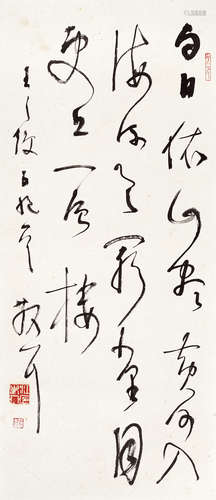 白日依山尽黄河入
海流欲穷千里目
更上一层楼
王之涣五绝
散耳